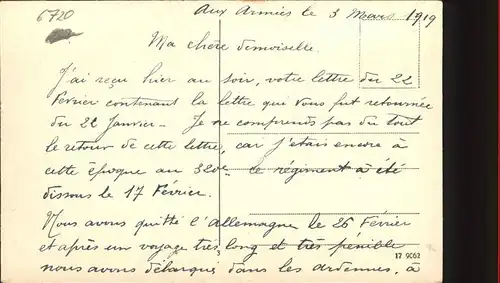 6720
Aux Armées le 3 Mars 1919
Ma chère demoiselle.
J'ai reçu hier au soir, votre lettre du 22
Février contenant la lettre qui vous fut retournée
du 22 Janvier - Je ne comprends pas du tout
le retour de cette lettre, car j'étais encore à
cette époque au 320e - ce régiment a été
dissous le 17 Février.
Nous avons quitté l'allemagne le 26 Février
et après un voyage très long et très pénible
nous avons débarqué dans les ardennes, à
17 9062